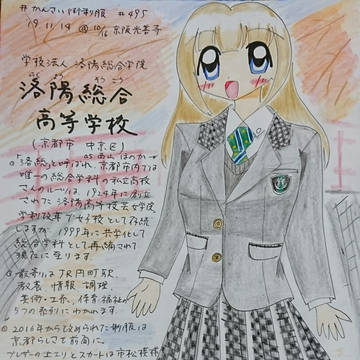 #かんさい 制服 #495
19.11.14 @ 10/16 京阪光善寺
学校法人 洛陽総合学院
らく よう そう ごう
洛陽総合
高等学校
(京都市 中京区)
◎「洛総」と呼ばれ、京都市内では
唯一の総合学科の私立高校
さんのルーツは、1924年に創立
された洛陽高等技芸女学院
学制改革で女子校として存続
しますが、1999年に共学化して
総合学科として再編されて
現在に至ります。
◎最寄りはJR円町駅。
教養 情報 調理
美術・工芸、保育・福祉の
5つの系列にわかれます。
◎2016年から改められた制服は
京都らしさを前面に。
ブレザーの上エリとスカートは市松模様